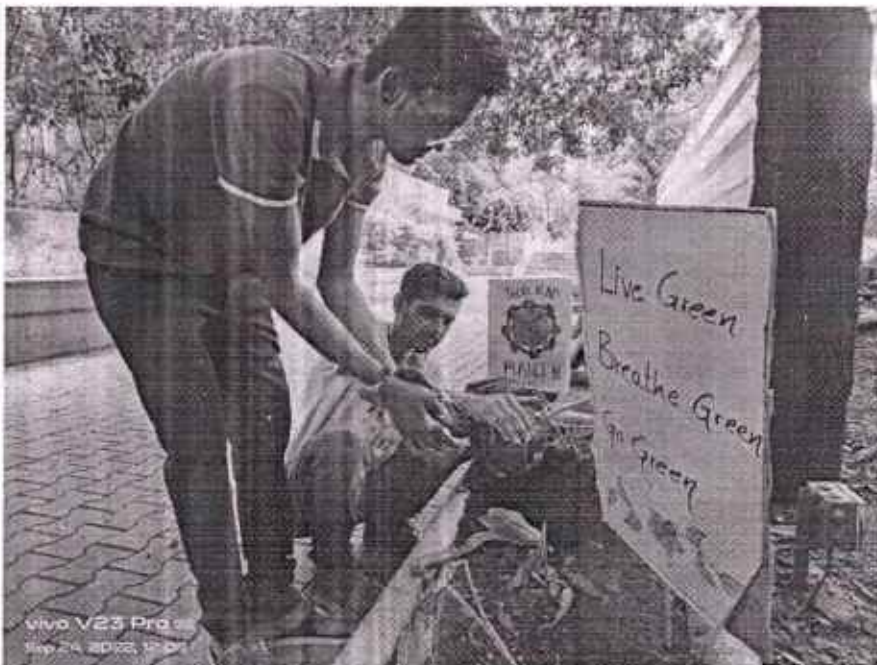 Live Green
Breathe Green
Go Green
vivo V23 Pro
Sep 24, 2022, 12: